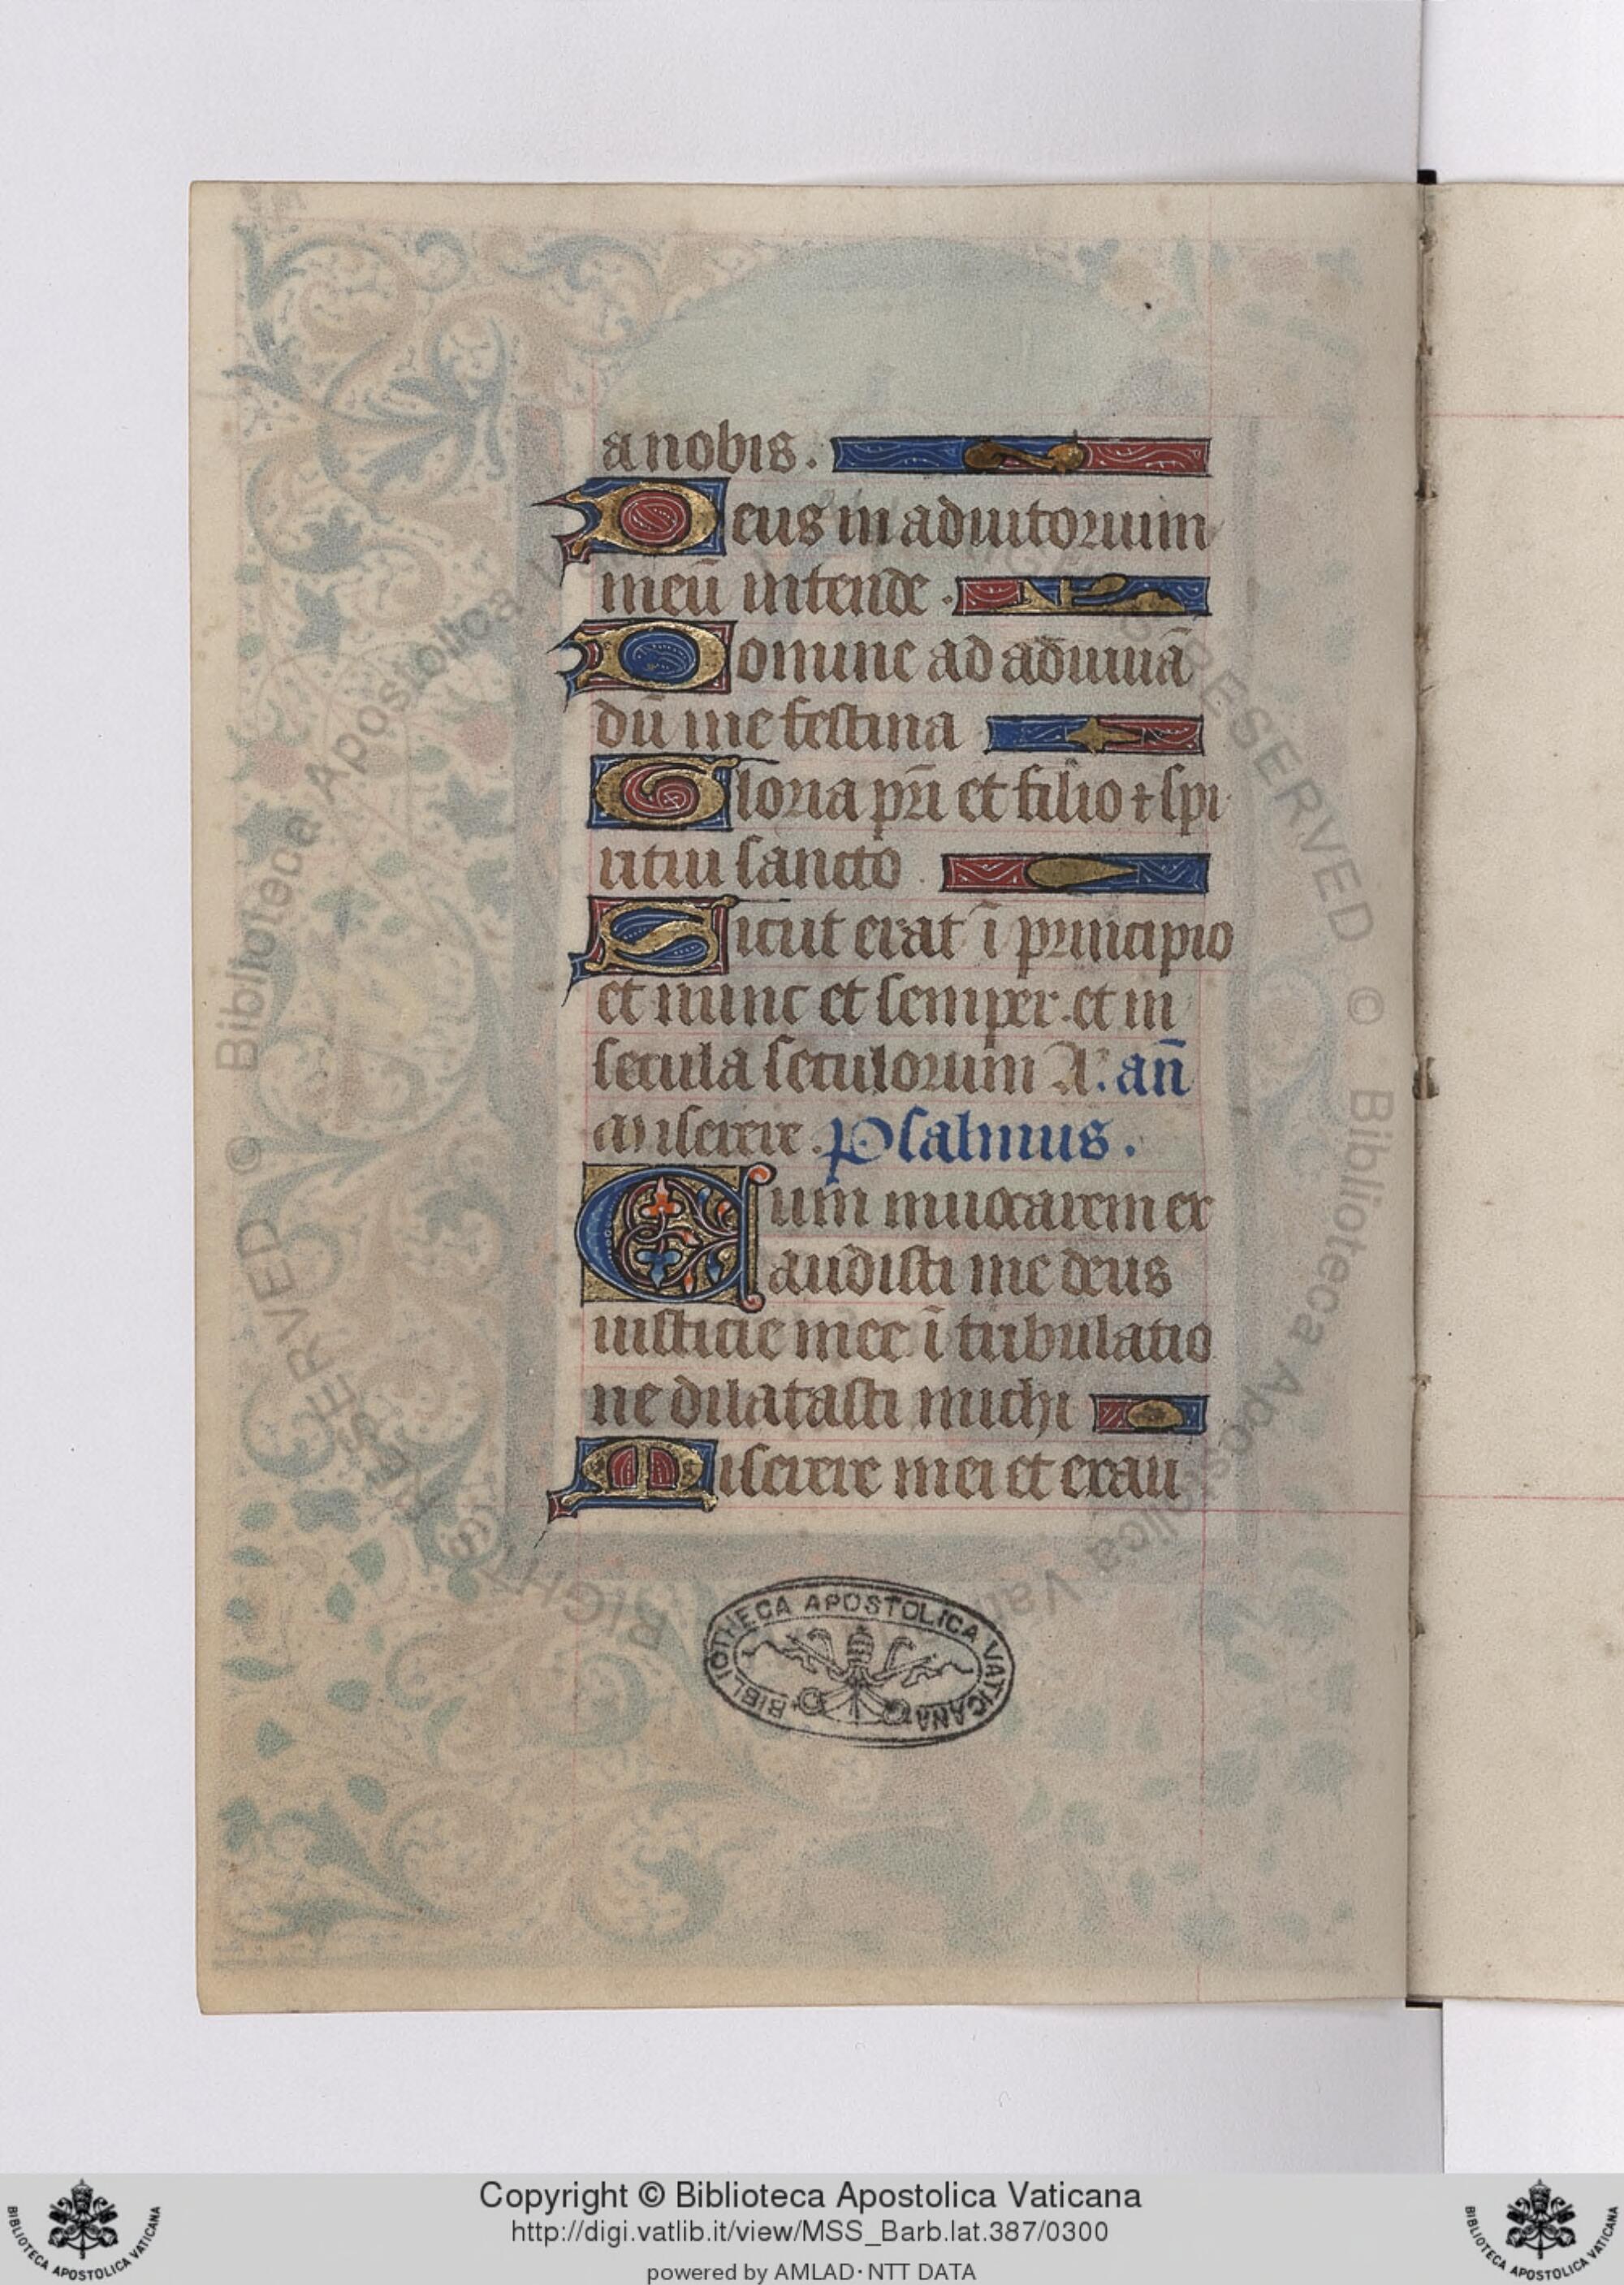 a nobis.
Deus in adiutorium
meū intende.
Domine ad adiuuā
dū me festina
Gloria pr̄i et filio ⁊ spi
ritui sancto.
Sicut erat ī principio
et nunc et semper. et in
secula seculorum A. an̄
Miserere. Psalmus.
Cum inuocarem ex
audisti me deus
iusticie mee ī tribulatio
ne dilatasti michi
Miserere mei et exau
BIBLIOTHECA APOSTOLICA VATICANA
Copyright © Biblioteca Apostolica Vaticana
http://digi.vatlib.it/view/MSS_Barb.lat.387/0300
powered by AMLAD·NTT DATA
BIBLIOTECA APOSTOLICA VATICANA
BIBLIOTECA APOSTOLICA VATICANA